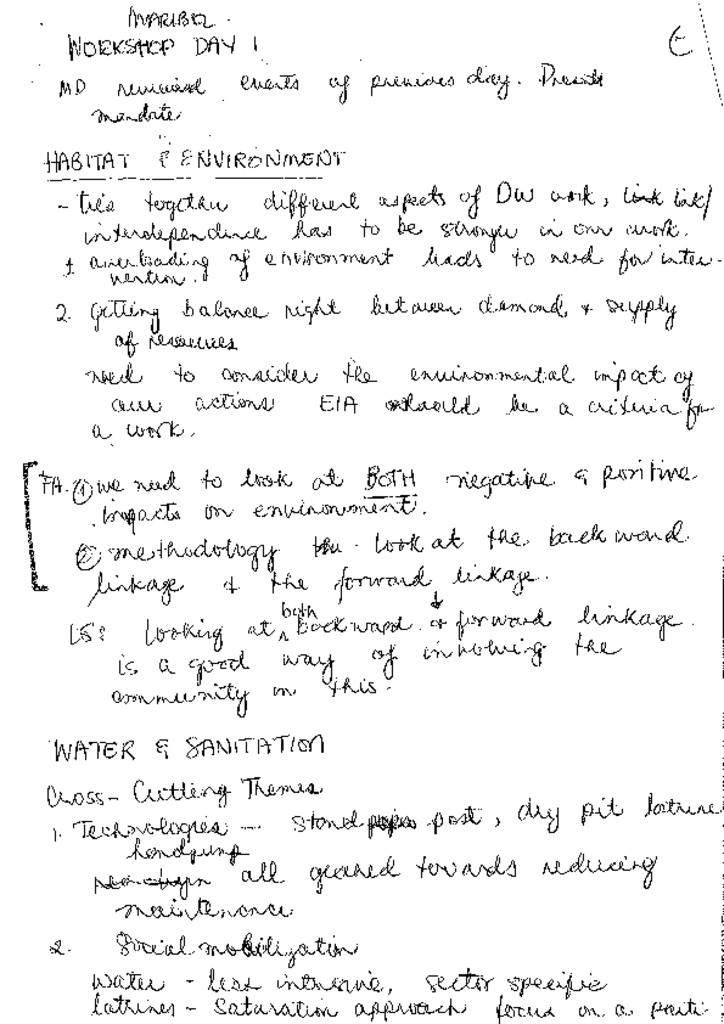 MARIBEL
WORKSHOP DAY 1
E
MD reviewed events of previous day. Presents
mandate
HABITAT & ENVIRONMENT
- ties together different aspects of DW work, link/
interdependence has to be stronger in our work.
+ overloading of environment leads to need for inter-
vention.
2. Getting balance right between demand & supply
of resources
need to consider the environmental impact of
our actions EIA should be a criteria for
a work.
FA. ① we need to look at BOTH negative & positive
impacts on environment.
② methodology - look at the backward
linkage & the forward linkage.
LS: looking at both backward & forward linkage
is a good way of involving the
community in this.
WATER & SANITATION
Cross-Cutting Themes
1. Technologies - stand post, dry pit latrine
handpump
all geared towards reducing
maintenance
2. Social mobilization
water - less intensive, sector specific
latrines - saturation approach focus on a parti